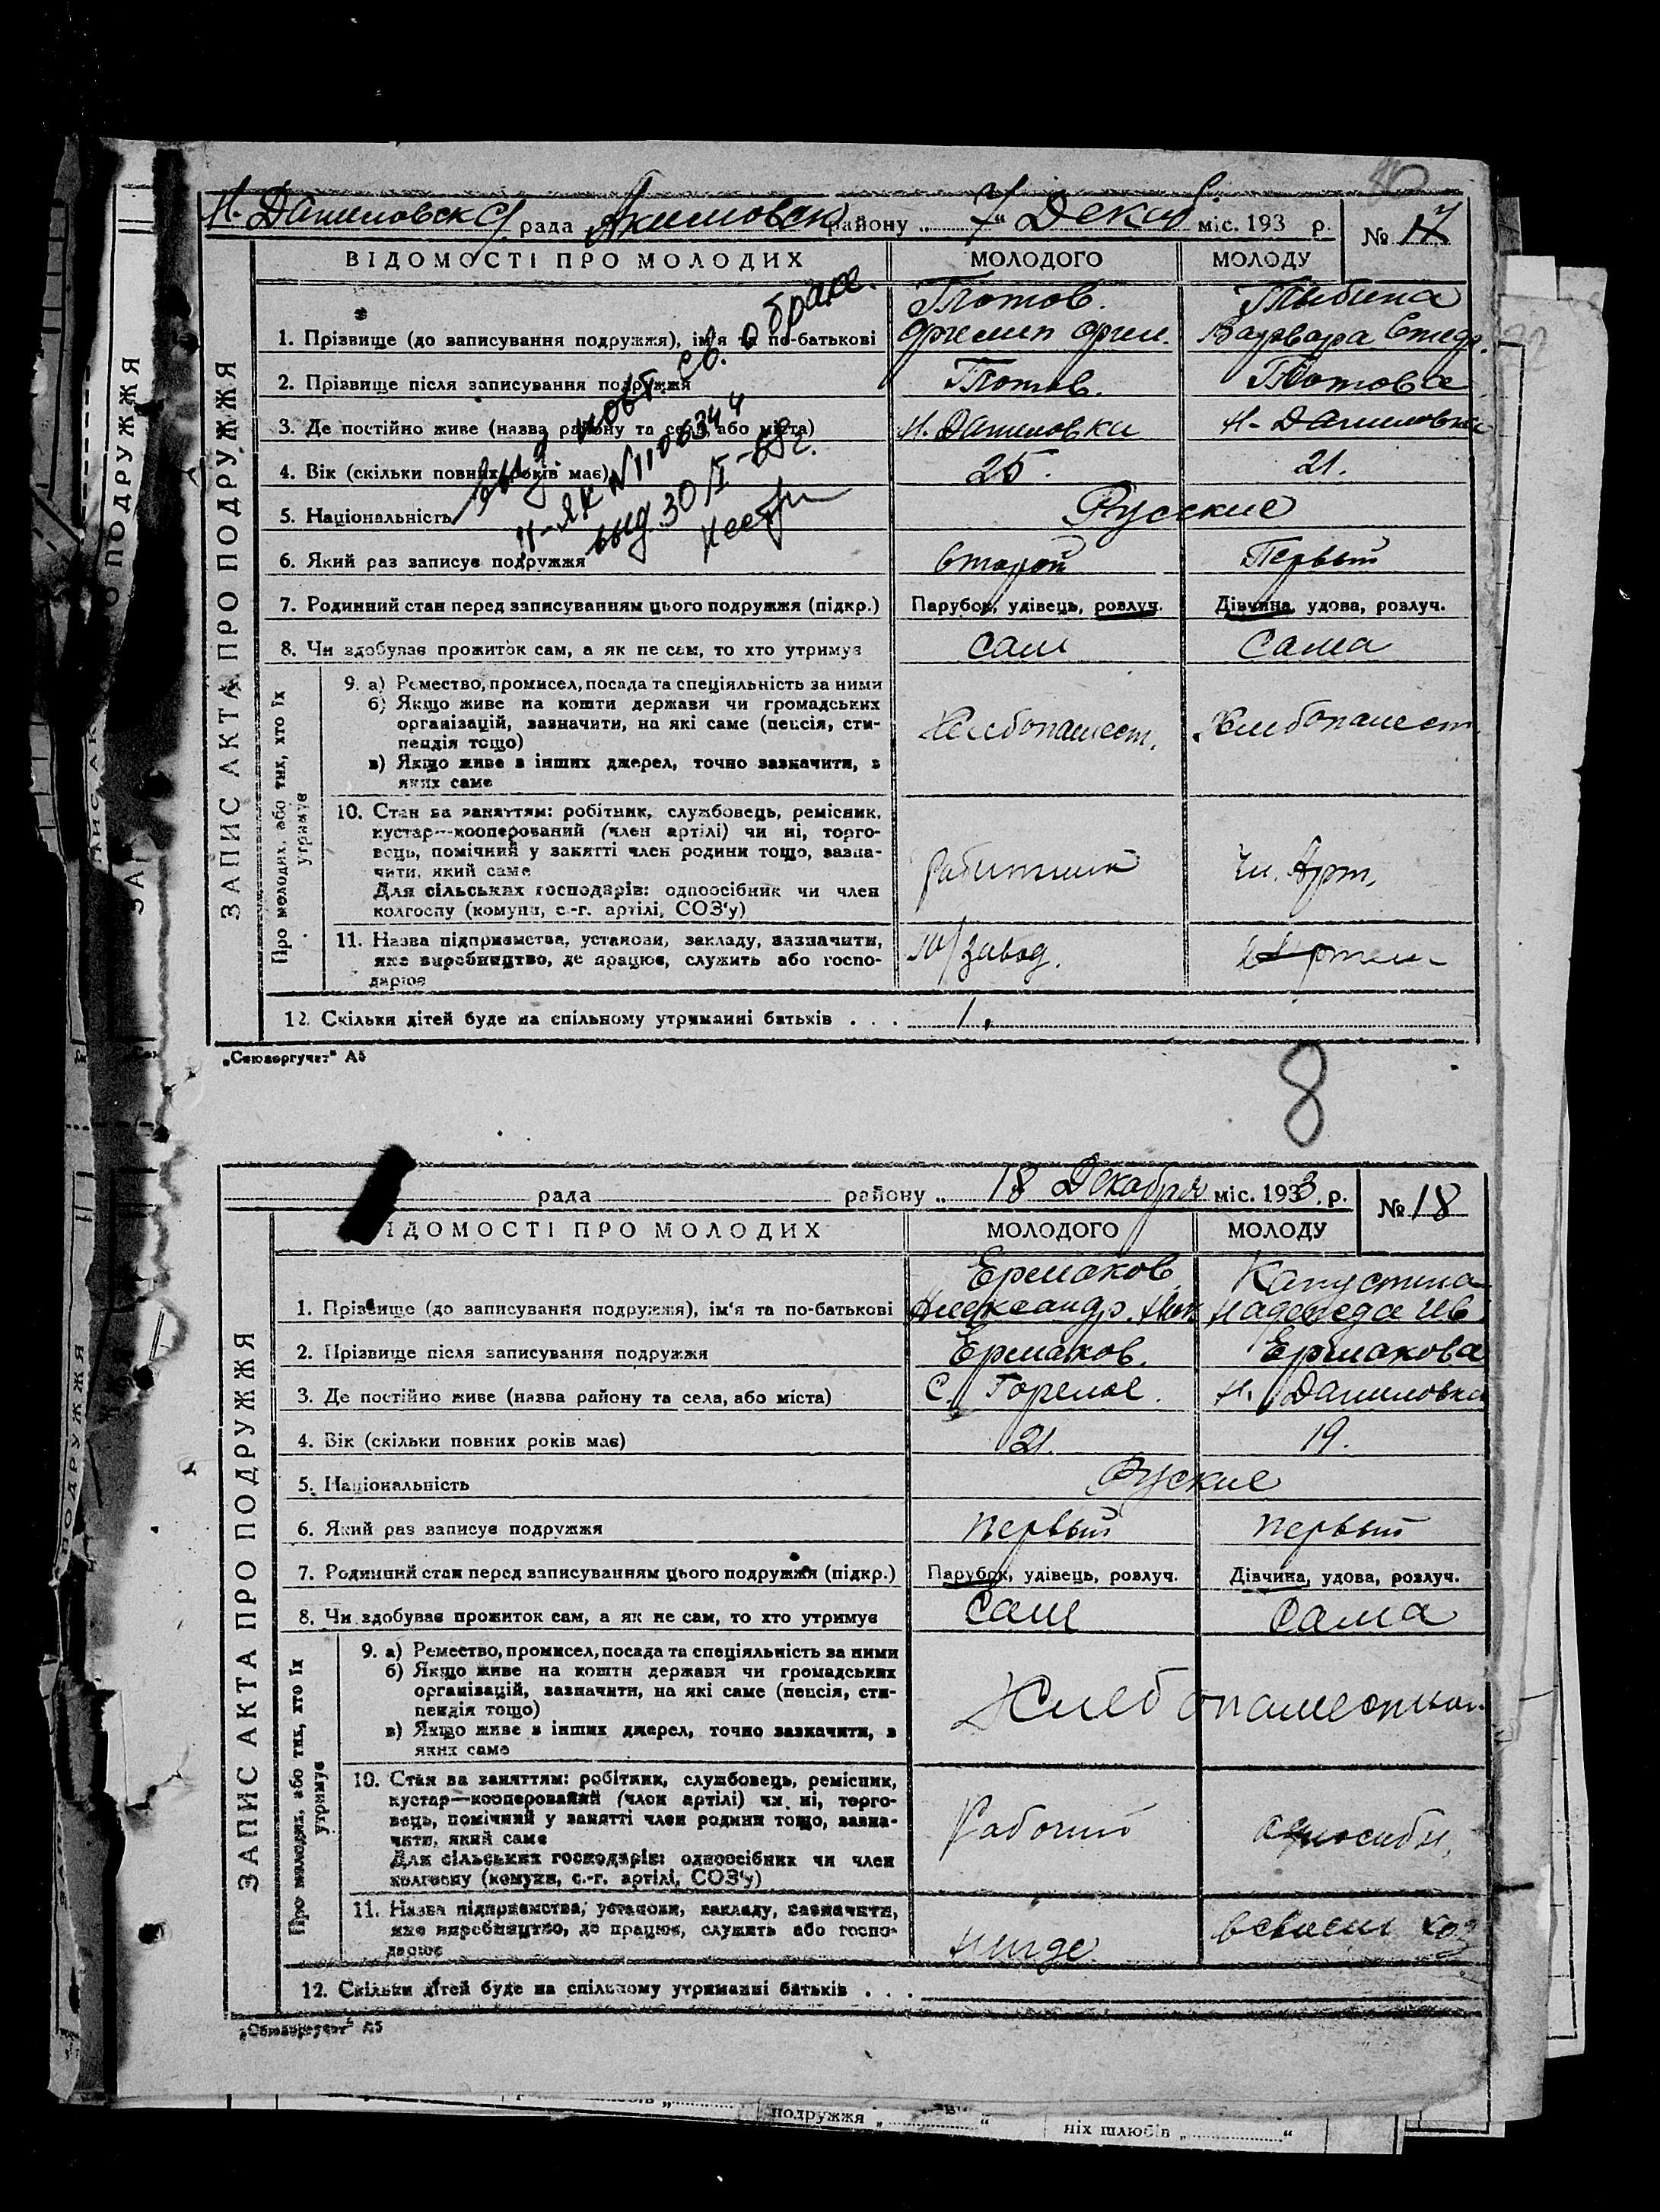 Н. Даниловск с/ рада Акимовск району „ 7 “ Декаб. міс. 193 р.
№ 17
ВІДОМОСТІ ПРО МОЛОДИХ
МОЛОДОГО
МОЛОДУ
ЗАПИС АКТА ПРО ПОДРУЖЖЯ
1. Прізвище (до записування подружжя), ім'я та по-батькові
Глотов.
Варвара
2. Прізвище після записування подружжя
Глотов.
Глотова
3. Де постійно живе (назва району та села, або міста)
Н. Даниловки
Н-Даниловки
4. Вік (скільки повних років має)
25.
21.
5. Національність
Русские
6. Який раз записує подружжя
второй
Первый
7. Родинний стан перед записуванням цього подружжя (підкр.)
Парубок, удівець, розлуч.
Дівчина, удова, розлуч.
8. Чи здобуває прожиток сам, а як не сам, то хто утримує
сам
Сама
выд повт. св. о браке.
II-ЯК №1106344
выд. 30/I-68г.
Про молодих, або тих, хто їх утримує
9. а) Ремество, промисел, посада та спеціяльність за ними
б) Якщо живе на кошти держави чи громадських
організацій, зазначити, на які саме (пенсія, сти-
пендія тощо)
в) Якщо живе з інших джерел, точно зазначити, з
яких саме
Хлебопашест.
Хлебопашест.
10. Стан за заняттям: робітник, службовець, ремісник,
кустар—кооперований (член артілі) чи ні, торго-
вець, помічний у занятті член родини тощо, зазна-
чити, який саме
Для сільських господарів: одноосібник чи член
колгоспу (комуни, с.-г. артілі, СОЗ'у)
Чл. Арт.
11. Назва підприємства, установи, закладу, зазначити,
яке виробництво, де працює, служить або госпо-
дарює
завод.
12. Скільки дітей буде на спільному утриманні батьків . . .
1.
„Союзоргучет“ А5
8
рада району „ 18 Декабря міс. 1933. р.
№ 18
ІДОМОСТІ ПРО МОЛОДИХ
МОЛОДОГО
МОЛОДУ
ЗАПИС АКТА ПРО ПОДРУЖЖЯ
1. Прізвище (до записування подружжя), ім'я та по-батькові
Ермаков
Александр. Ник
Капустина
Надежда Ив
2. Прізвище після записування подружжя
Ермаков.
Ермакова
3. Де постійно живе (назва району та села, або міста)
С. Горелое.
Н. Даниловка
4. Вік (скільки повних років має)
21.
19.
5. Національність
Руские
6. Який раз записує подружжя
первый
первый
7. Родинний стан перед записуванням цього подружжя (підкр.)
Парубок, удівець, розлуч.
Дівчина, удова, розлуч.
8. Чи здобуває прожиток сам, а як не сам, то хто утримує
Сам
Сама
Про молодих, або тих, хто їх утримує
9. а) Ремество, промисел, посада та спеціяльність за ними
б) Якщо живе на кошти держави чи громадських
організацій, зазначити, на які саме (пенсія, сти-
пендія тощо)
в) Якщо живе з інших джерел, точно зазначити, з
яких саме
10. Стан за заняттям: робітник, службовець, ремісник,
кустар—кооперований (член артілі) чи ні, торго-
вець, помічний у занятті член родини тощо, зазна-
чити, який саме
Для сільських господарів: одноосібник чи член
колгоспу (комуни, с.-г. артілі, СОЗ'у)
Рабочий
11. Назва підприємства, установи, закладу, зазначити,
яке виробництво, де працює, служить або госпо-
дарює
нигде
всвоем хоз
12. Скільки дітей буде на спільному утриманні батьків . . .
„Союзоргучет“ А5
подружжя „ “
ніх шлюбів „ “